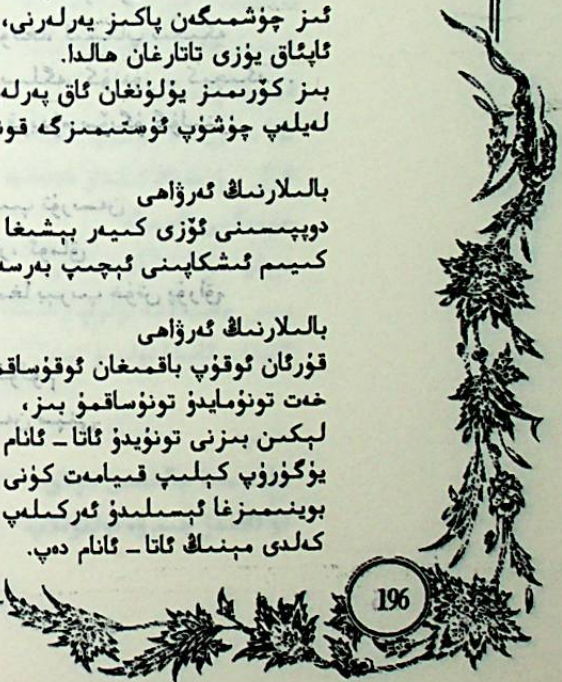 ئىز چۈشمىگەن پاكىز يەرلەرنى،
ئاپئاق يۈزى تاتارغان ھالدا.
بىز كۆرىمىز يۇلۇنغان ئاق پەرلە
لەيلەپ چۈشۈپ ئۈستىمىزگە قون
بالىلارنىڭ ئەرۋاھى
دوپپىسىنى ئۆزى كىيەر بېشىغا
كىيىم ئىشكاپىنى ئېچىپ بەرسە
بالىلارنىڭ ئەرۋاھى
قۇرئان ئوقۇپ باقمىغان ئوقۇساقم
خەت تونۇمايدۇ تونۇساقمۇ بىز،
لېكىن بىزنى تونۇيدۇ ئاتا ـ ئانام
يۈگۈرۈپ كېلىپ قىيامەت كۈنى
بوينىمىزغا ئېسىلىدۇ ئەركىلەپ
كەلدى مېنىڭ ئاتا ـ ئانام دەپ.
196